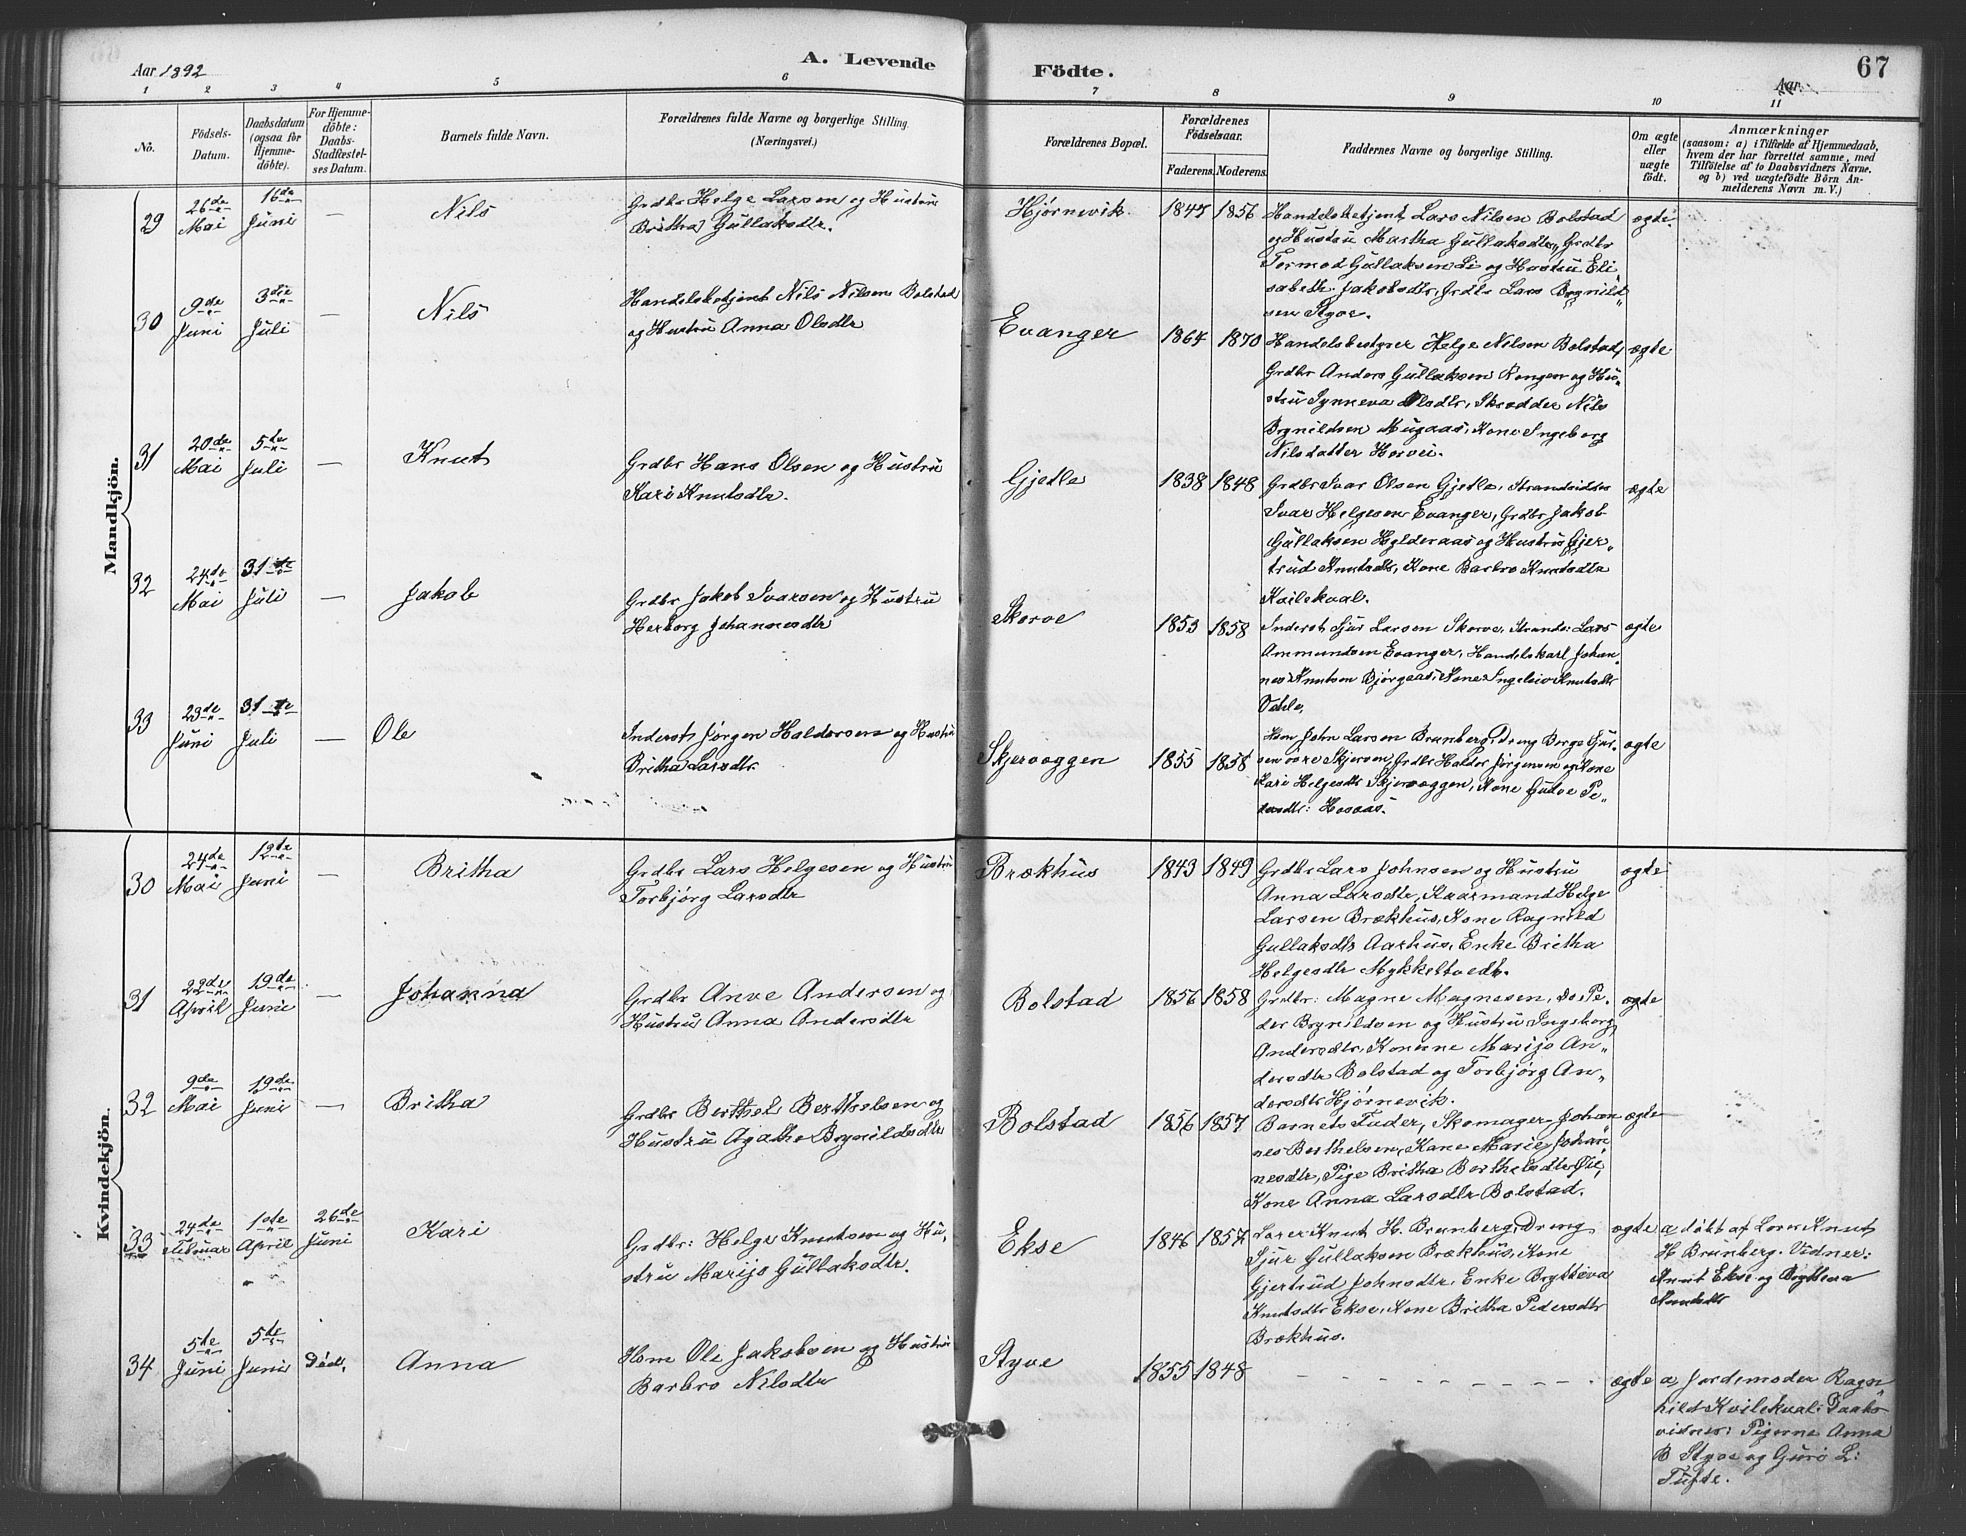 Aar 1892
A. Levende
Födte.
Aar
67
1 2 3 4 5 6 7 8 9 10 11
No.
Födsels-Datum.
Daabsdatum (ogsaa for Hjemmedöbte).
For Hjemmedöbte: Daabs-Stadfæstelses Datum.
Barnets fulde Navn.
Forældrenes fulde Navne og borgerlige Stilling.
(Næringsvei.)
Forældrenes Bopæl.
Forældrenes Födselsaar.
Faderens. Moderens.
Faddernes Navne og borgerlige Stilling.
Om ægte eller uægte födt.
Anmærkninger
(saasom: a) i Tilfælde af Hjemmedaab, hvem der har forrettet samme, med Tilföielse af to Daabsvidners Navne. og b) ved uægtefödte Börn Anmelderens Navn m. V.)
Mandkjön.
29
26de Mai
16de Juni
—
Nils
Grdbr Helge Larsen og Hustru
Britha Gullaksdtr.
Hjørnevik
1847 1856
Handelsbetjent Lars Nilsen Bolstad
og Hustru Martha Gullaksdtr, Grdbr
Tormod Gullaksen Li og Hustru Eli-
sabeth Jakobsdtr, Grdbr Lars Brynild-
sen Styve.
ægte
30
9de Juni
3die Juli
—
Nils
Handelsbetjent Nils Nilsen Bolstad
og Hustru Anna Olsdtr
Evanger
1864 1870
Handelsbestyrer Helge Nilsen Bolstad,
Grdbr Anders Gullaksen Rongen og Hu-
stru Synneva Olsdtr, Skrædder Nils
Brynildsen Mugaas, Kone Ingeborg
Nilsdatter Horvei.
ægte
31
20de Mai
5te Juli
—
Knut
Grdbr Hans Olsen og Hustru
Kari Knutsdtr.
Gjetle
1838 1848
Grdbr Ivar Olsen Gjetle, Strandsidder
Ivar Helgesen Evanger, Grdbr Jakob
Gullaksen Hylderaas og Hustru Gjer-
trud Knutsdtr, Kone Barbro Knutsdtr
Kvilekval.
ægte
32
24de Mai
31te Juli
—
Jakob
Grdbr Jakob Ivarsen og Hustru
Herborg Johannesdtr
Skorve
1853 1858
Inderst Sjur Larsen Skorve, Strands: Lars
Ammundsen Evanger, Handelskarl Johan-
nes Knutsen Bjørgaas, Kone Ingeleiv Knutsdtr
Vahle.
ægte
33
23de Juni
31te Juli
—
Ole
Inderst Jørgen Haldorsen og Hustru
Britha Larsdtr.
Skjervæggen
1855 1858
Hsm John Larsen Brunberg, Dreng Børge Sjur-
sen øvre Skjerven, Grdbr Haldor Jørgensen og Kone
Kari Helgesdtr Skjervæggen, Kone Gudve Pe-
dersdtr:
ægte
Kvindekjön.
30
24de Mai
12te Juni
—
Britha
Grdbr Lars Helgesen og Hustru
Torbjørg Larsdtr
Brækhus
1843 1849
Grdbr Lars Johnsen og Hustru
Anna Larsdtr, Kaarmand Helge
Larsen Brækhus, Kone Ragnild
Gullaksdtr Aarhus, Enke Britha
Helgesdtr Mykkeltvedt.
ægte
31
22de April
19de Juni
—
Johanna
Grdbr Anve Andersen og
Hustru Anna Andersdtr
Bolstad
1856 1858
Grdbr: Magne Magnesen, Do Pe-
der Brynildsen og Hustru Ingeborg
Andersdtr, Konerne Marijo An-
dersdtr Bolstad og Torbjørg An-
dersdtr Hjørnevik.
ægte
32
9de Mai
19de Juni
—
Britha
Grdbr Berthel Berthelsen og
Hustru Agatha Brynildsdtr
Bolstad
1856 1857
Barnets Fader, Skomager Johan-
nes Berthelsen, Kone Marie Johan-
nesdtr, Pige Britha Berthelsdtr
Kone Anna Larsdtr Bolstad.
ægte
33
24de Februar
1ste April
26de Juni
Kari
Grdbr: Helge Knutsen og Hu-
stru Marijo Gullaksdtr.
Ekse
1846 1857
Lærer Knut H. Brunberg, Dreng
Sjur Gullaksen Brækhus, Kone
Gjertrud Johnsdtr, Enke Brytteva
Knutsdtr Ekse, Kone Britha Pedersdtr
Brækhus.
ægte
a, døbt af Lærer Knut
H Brunberg. Vidner:
Knut Ekse og Brytteva
Knutsdtr
34
5te Juni
5te Juni
Død.
Anna
Hsm Ole Jakobsen og Hustru
Barbro Nilsdtr
Styve
1855 1848
— — — — — — — — —
ægte
a, Jordemoder Ragn-
hild Kvilekval: Daabs-
vidner: Pigerne Anna
B Styve og Guro L:
Tufte.